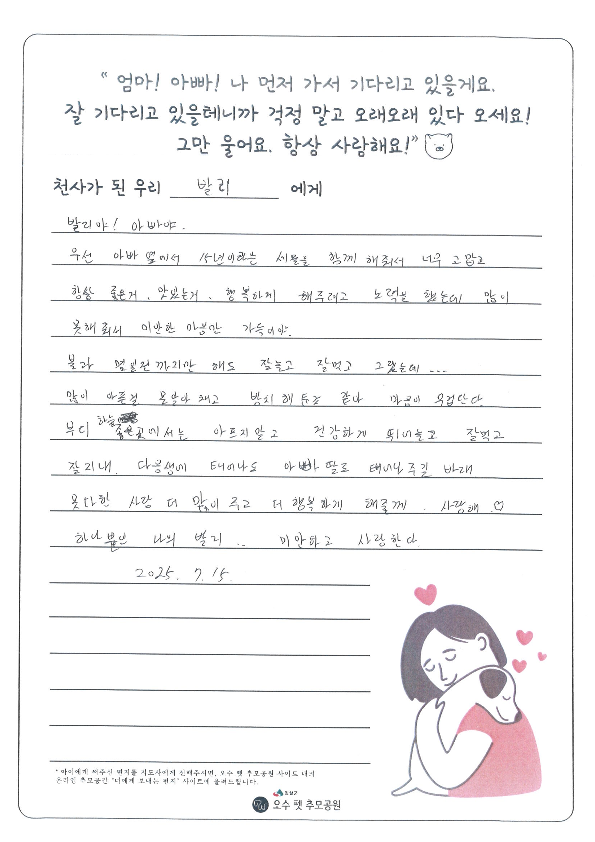 “ 엄마! 아빠! 나 먼저 가서 기다리고 있을게요.
잘 기다리고 있을테니까 걱정 말고 오래오래 있다 오세요!
그만 울어요. 항상 사랑해요!”
천사가 된 우리 발리 에게
발리야! 아빠야.
우선 아빠 옆에서 15년이라는 세월을 함께 해줘서 너무 고맙고
항상 좋은거, 맛있는거, 행복하게 해주려고 노력은 했는데 많이
못해줘서 미안한 마음만 가득이야.
불과 몇일전까지만 해도 잘놀고 잘먹고 그랬는데...
많이 아픈걸 못알아채고 방치해 둔것 같아 마음이 무겁단다.
부디 하늘 좋은곳에서는 아프지말고 건강하게 뛰어놀고 잘먹고
잘지내. 다음생에 태어나도 아빠 딸로 태어나주길 바래
못다한 사랑 더 많이 주고 더 행복하게 해줄께. 사랑해.♡
하나뿐인 나의 발리.. 미안하고 사랑한다
2025. 7. 15.
* 아이에게 써주신 편지를 지도사에게 전해주시면, 오수 펫 추모공원 사이트 내의
온라인 추모공간 "너에게 보내는 편지" 사이트에 올려드립니다.
오수 펫 추모공원